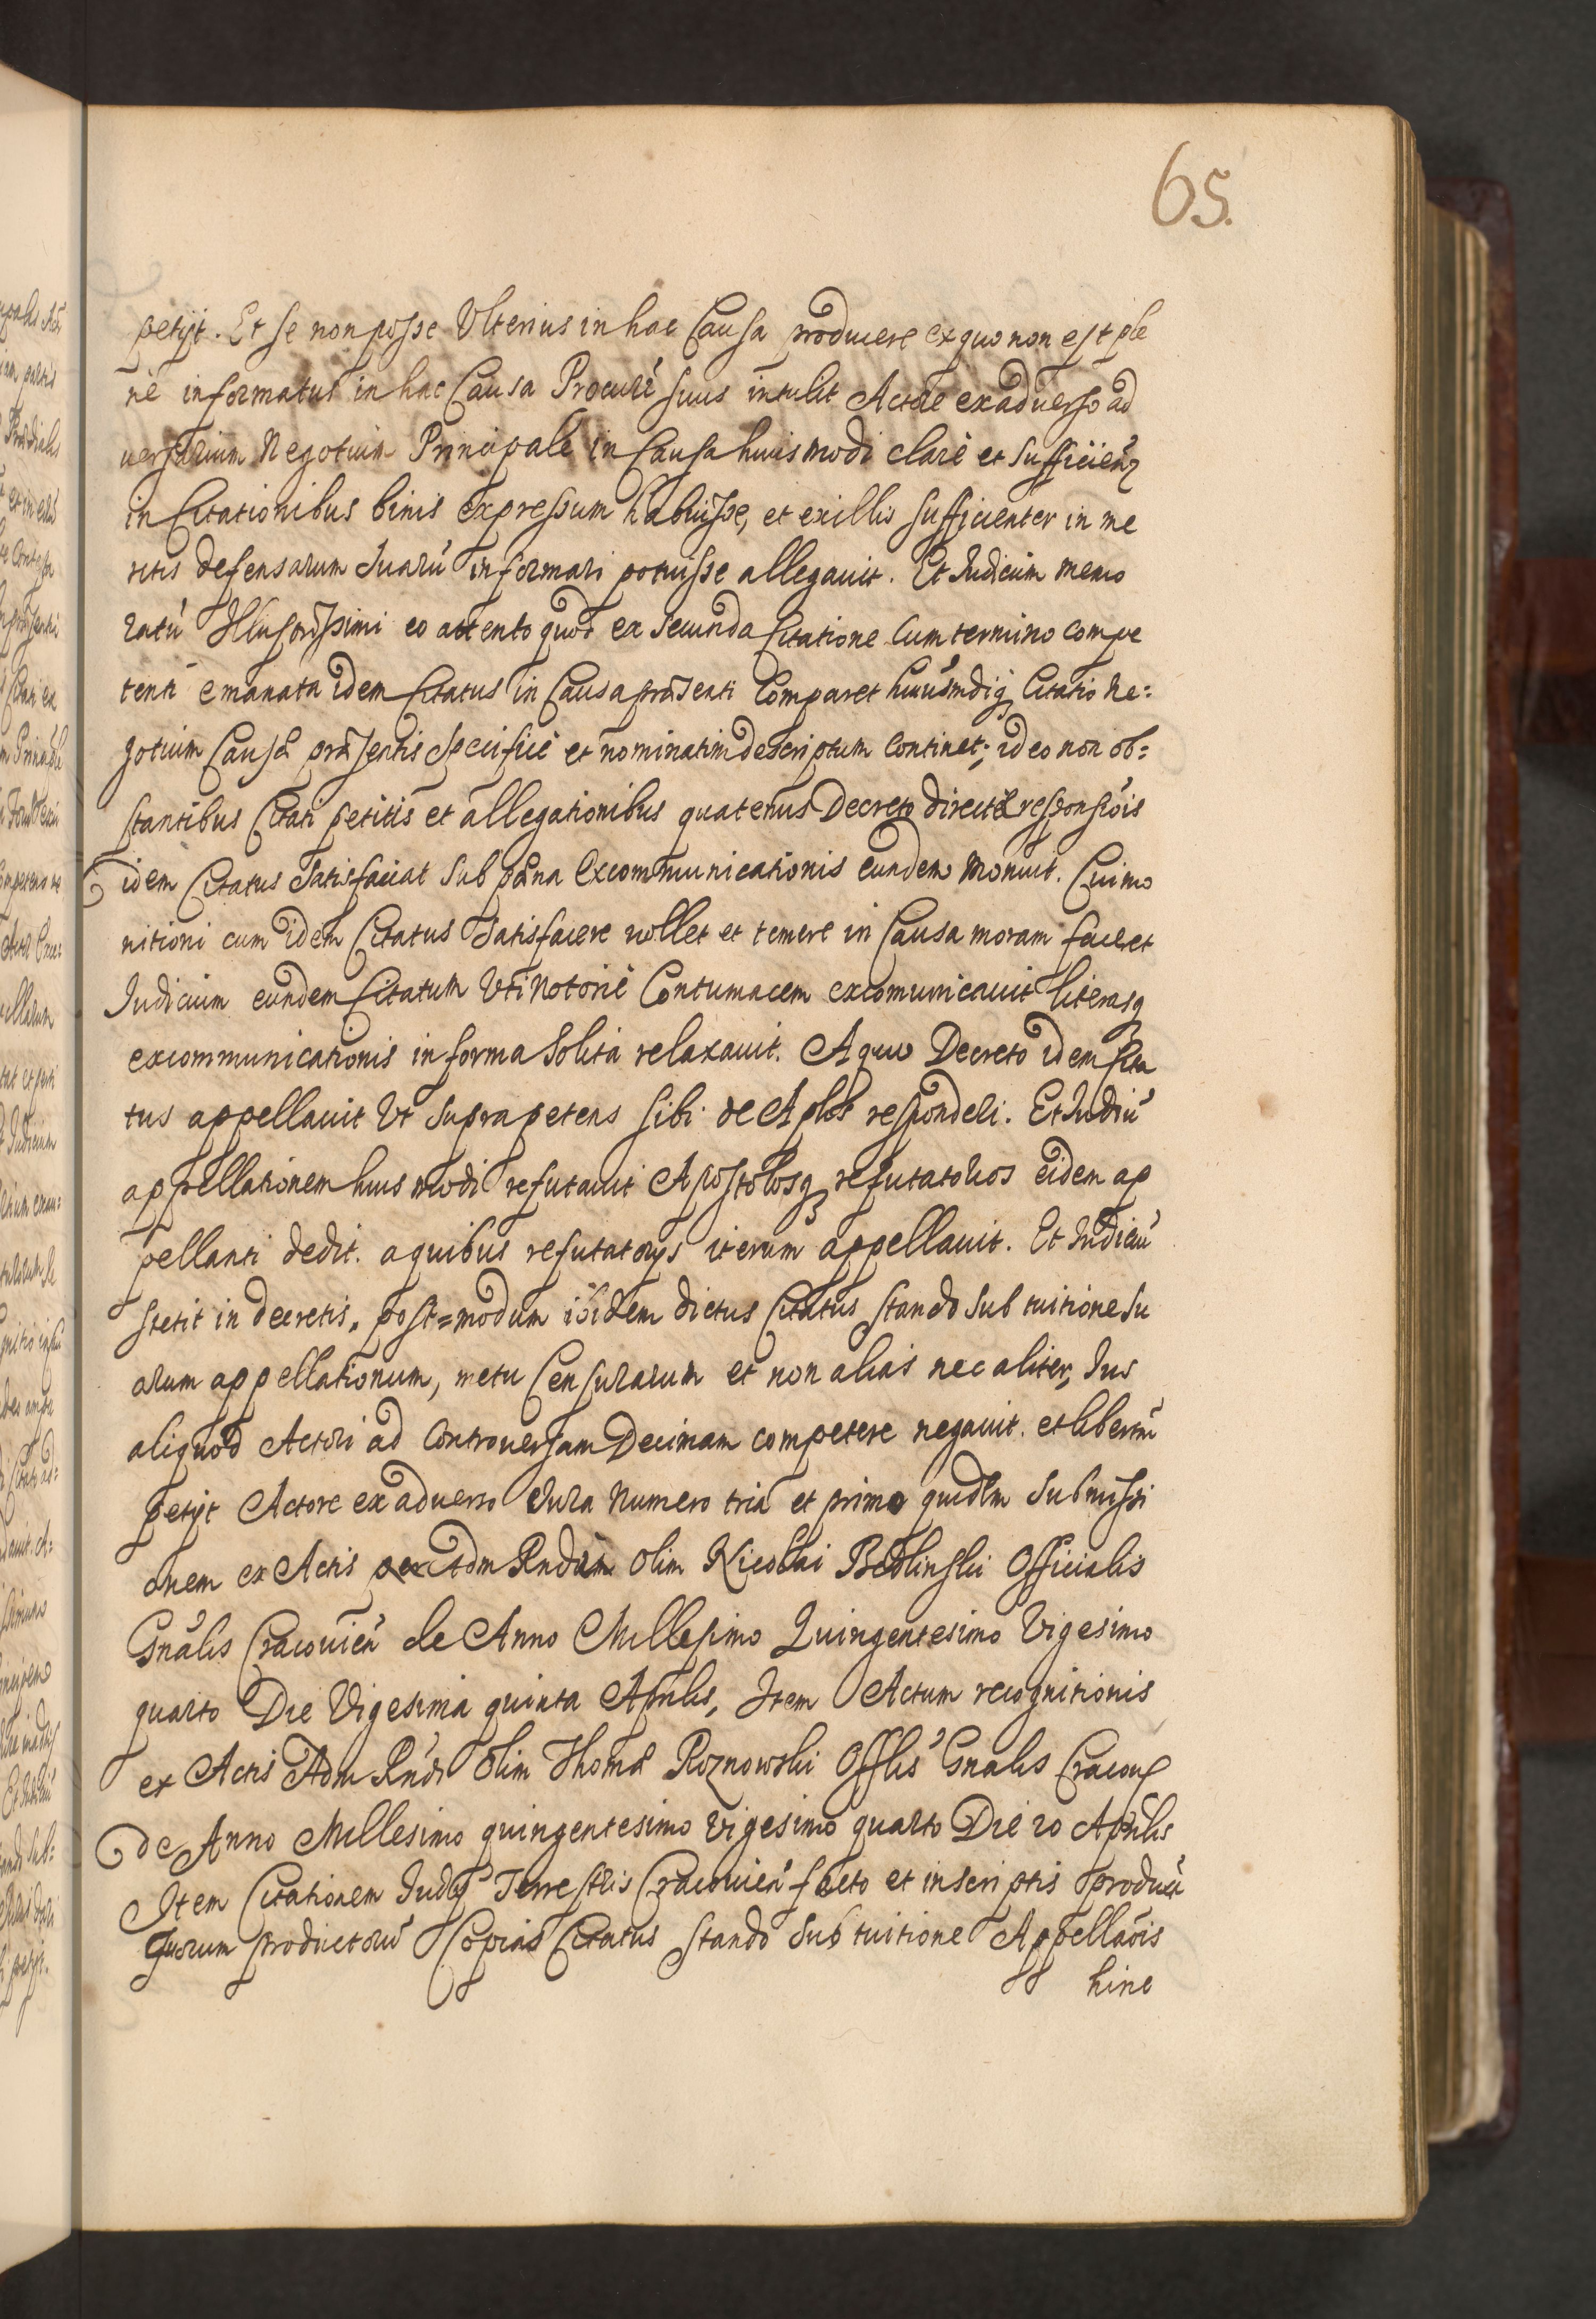 65.
petijt. Et se non posse Ulterius in hac Causa producere ex quo non est ple
nè informatus in hac Causa Procurâ suus intulit Actore exaduerso ad
uersarium Negotium Principale in Causa huismodi clarè et sufficien̄
in Citationibus binis expressum habuisse, et ex illis sufficienter in me
ritis defensarum Suarū informari potuisse allegauit. Et Iudicium memo
ratū Illustrissimi eo attento quod ex Secunda Citatione Cum termino compe
tenti emanata idem Citatus in Causa præsenti Comparet huiusmdiq; Citatio Ne:
gotium Causæ præsentis Specificè et nominatim descriptum Continet; ideo non ob=
stantibus Citati petitis et allegationibus quatenus Decreto directæ responsiōis
idem Citatus Satisfaciat Sub pœna Excommunicationis eundem Monuit. Cui mo
nitioni cum idem Citatus Satisfacere nollet et temere in Causa moram faceret
Iudicium eundem Citatum Uti Notoriè Contumacem excomunicauit literasq;
excommunicationis in forma Solita relaxauit. A quo Decreto idem Cita
tus appellauit Ut Supra petens sibi de Aplos responderi. Et Iudiū
appellationem huismodi refutauit Apostolosq; refutatorios eidem ap
pellanti dedit. a quibus refutatorijs iterum appellauit. Et Iudiciū
stetit in decretis, post=modum ibidem dictus Citatus stando Sub tuitione Su
arum appellationum, metu Censurarum et non alias nec aliter, Ius
aliquod Actori ad Controuersam Decimam competere negauit. et libertū
petijt Actore ex aduerso Iura Numero tria et primo quidem Submissi
onem ex Actis per Adm Rndum Olim Nicolai Bedlinski Officialis
Gnālis Cracouien̄ de Anno Millesimo Quingentesimo Vigesimo
quarto Die Vigesima quinta Aprilis, Item Actum recognitionis
ex Actis Adm Rn̄di Olim Thomæ Roznowski Offlis Gnalis Cracou
de Anno Millesimo quingentesimo vigesimo quarto Die 20 Aprilis
Item Citationem Iudÿ Terrestris Cracouien̄ facto et in scriptis produxit
Quorum productorū Copias Citatus stando Sub tuitione Appellaōis
hinc